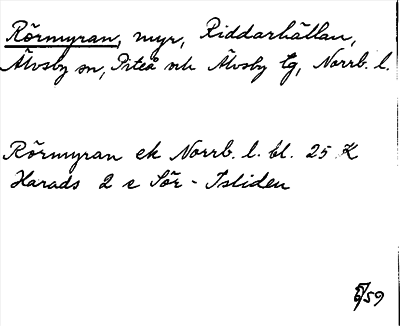 Rörmyran, myr, Riddarhällan,
Älvsby sn, Piteå och Älvsby tg, Norrb. l.
Rörmyran ek Norrb. l. bl. 25 K
Harads 2 c Sör-Isliden
/59